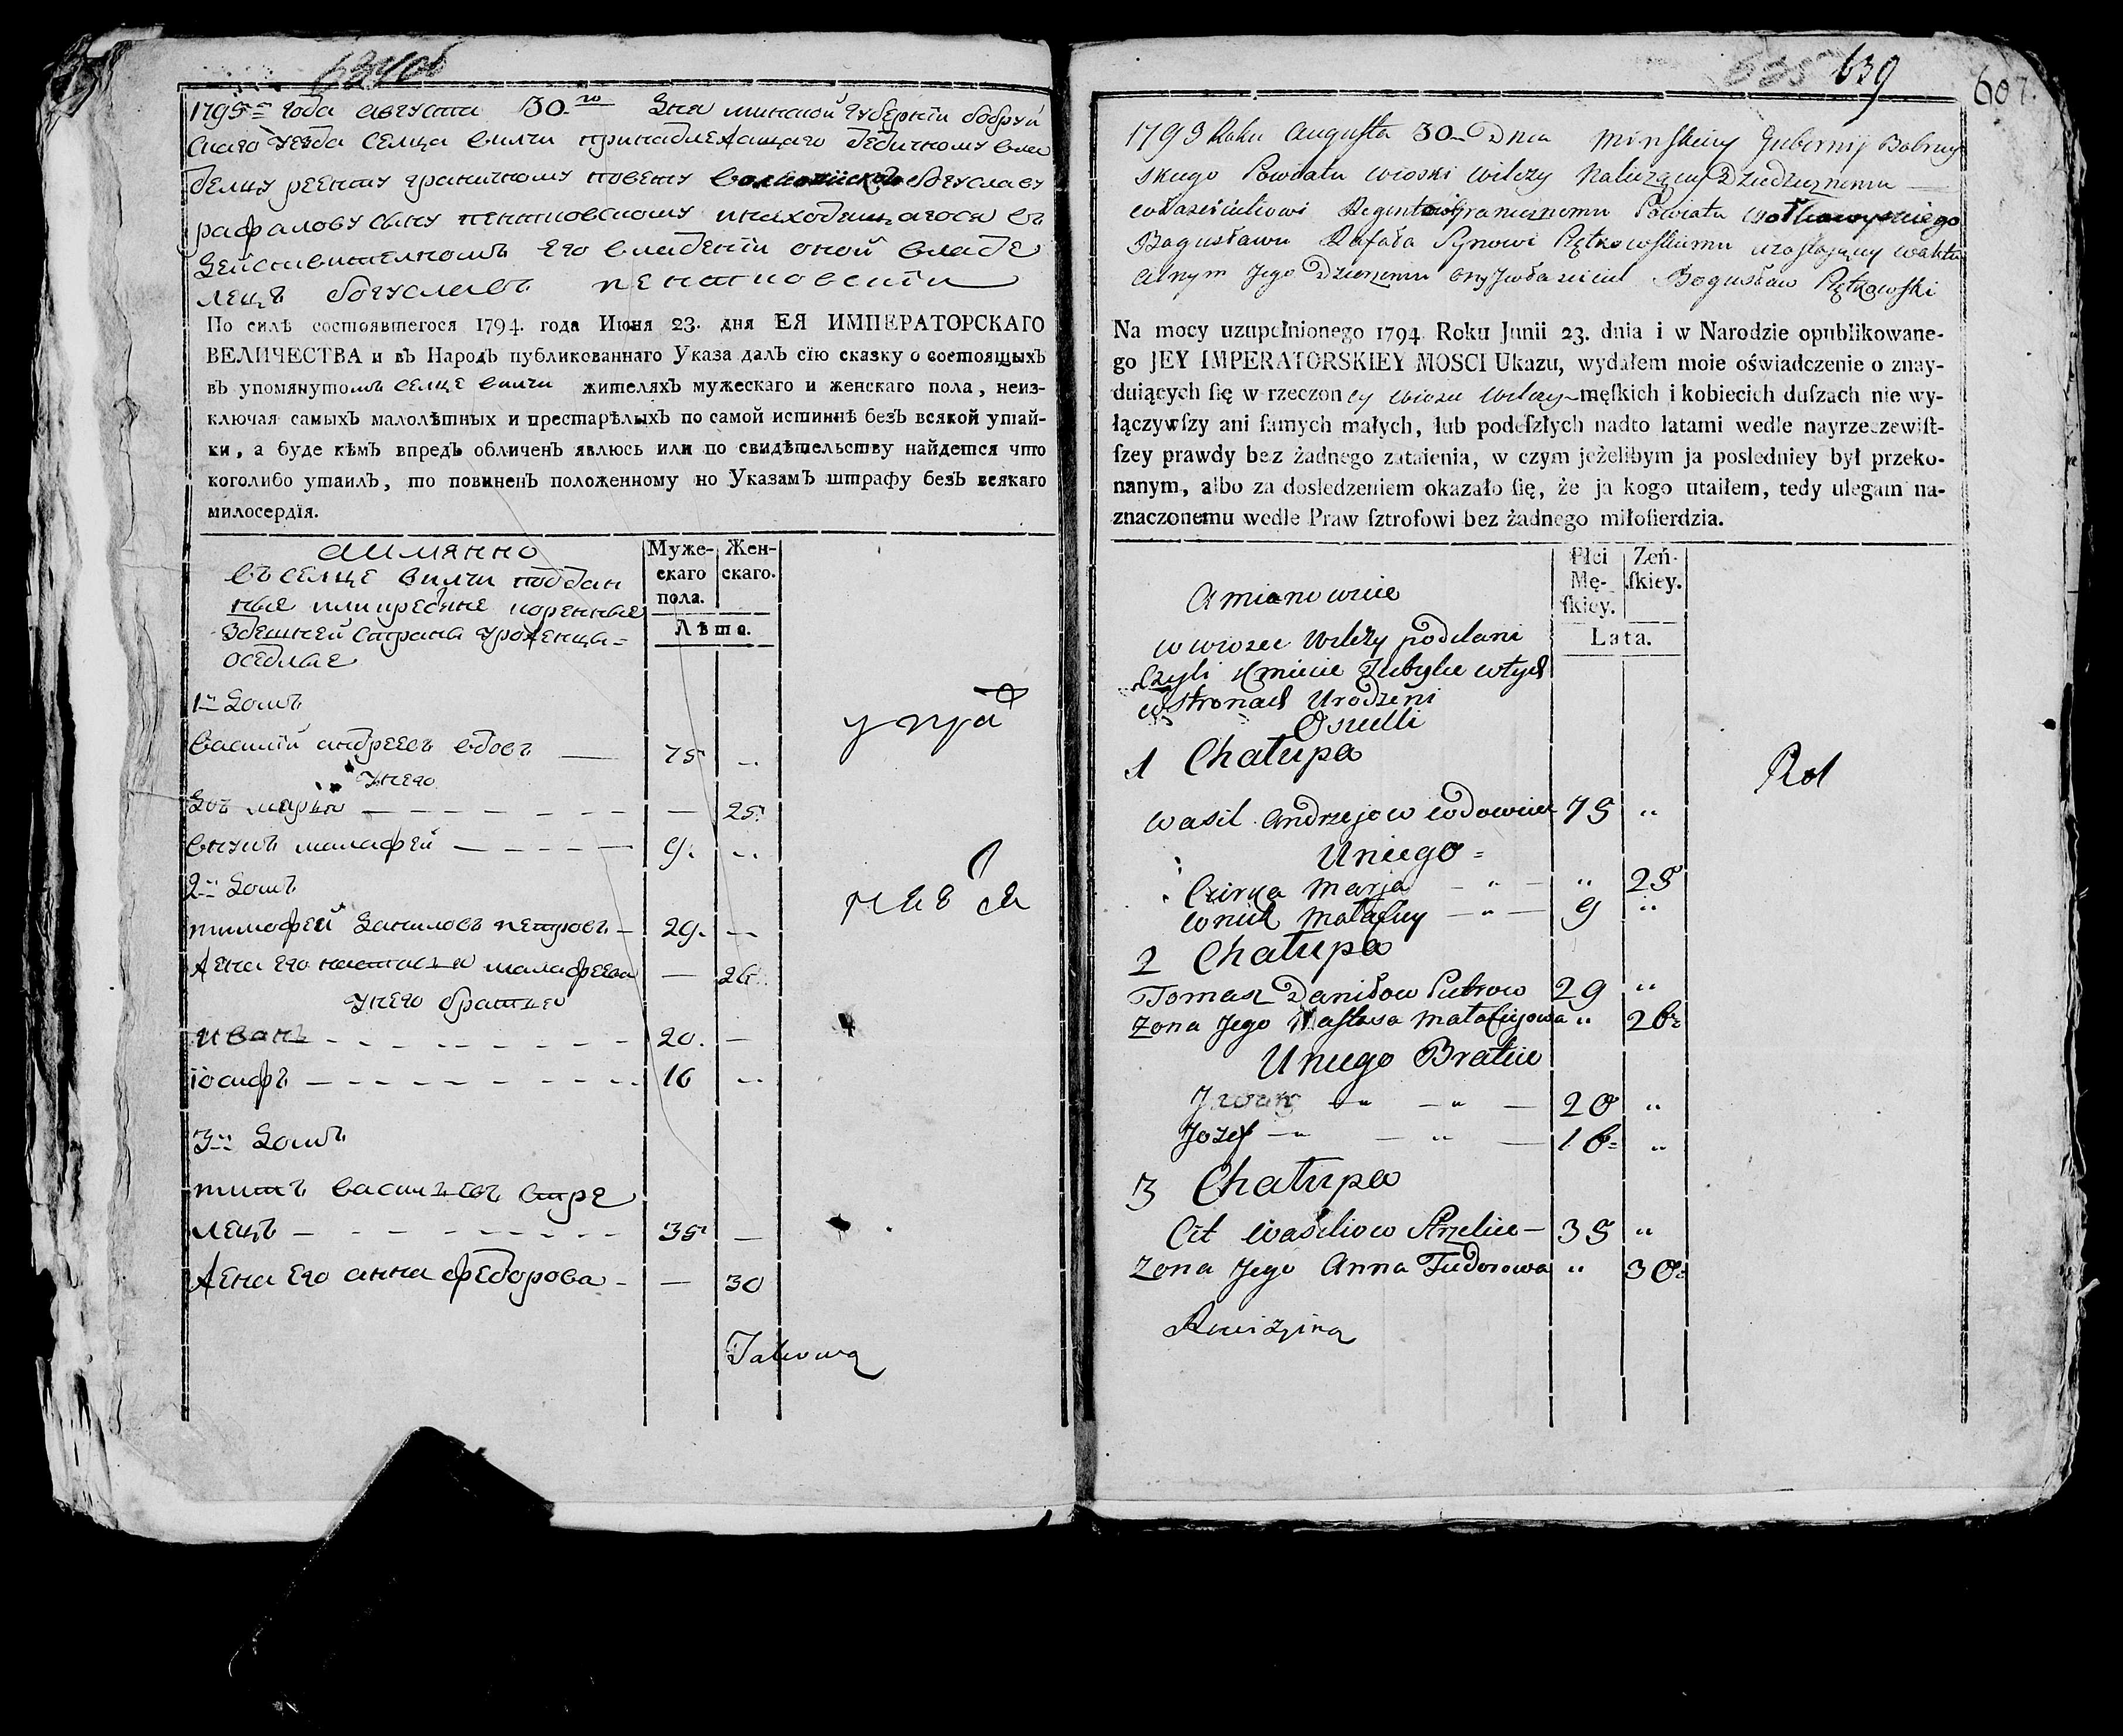 1795 года августа 30.го дня минской губернїи бобруй
скаго уезда селца вилчи принадлежащаго дедичному вла
делцу реенту граничному повету богуславу
рафалову сыну пентковскому инаходещагося въ
действителномъ его владенїи оной владе
лецъ богуславъ пентковскїи
По силѣ состоявшегося 1794. года Июня 23. дня ЕЯ ИМПЕРАТОРСКАГО
ВЕЛИЧЕСТВА и въ Народъ публикованнаго Указа далъ сїю сказку о состоящыхъ
въ упомянутомъ селце вилчи жителяхъ мужескаго и женскаго пола, неиз-
ключая самыхъ малолѣтныхъ и престарѣлыхъ по самой истиннѣ безъ всякой утай-
ки, а буде кѣмъ впредь обличенъ явлюсь или по свидѣтельству найдется что
коголибо утаилъ, то повиненъ положенному по Указамъ штрафу безъ всякаго
милосердїя.
аимянно
въ селце вилчи поддан
ные коренные
здешней страны уроженцы
оседлые
Муже-
скаго
пола.
Жен-
скаго.
Лѣта.
1й домъ
василїй андреевъ вдовъ 75
унего
дочь марья 25
внукъ малафей 9.
2й домъ
тимофей даниловъ петровъ 29.
жена его настасья малафеева 26
унего братья
иванъ 20.
їосифъ 16
3й домъ
титъ васильевъ стре
лецъ 35
жена его анна федорова 30
639
607.
1795 Roku Augusta 30 Dnia Minskiey Gubernij Bobruy
skiego Powiatu wioski Wilczy Należącey Dziedzicznemu
właścicielowi Regentowi Granicznemu Powiatu Wołkowyskiego
Bogusławu Rafała Synowi Pętkowskiemu zostającey waktu
alnym Jego Dzierżeniu oney właściciel Bogusław Pętkowski
Na mocy uzupełnionego 1794 Roku Junii 23. dnia i w Narodzie opublikowane-
go JEY IMPERATORSKIEY MOSCI Ukazu, wydałem moie oświadczenie o znay-
duiących ſię w rzeczoney wiosce Wilczy męſkich i kobiecich duſzach nie wy-
łączywſzy ani ſamych małych, łub podeſzłych nadto latami wedle nayrzeczewiſt-
ſzey prawdy bez żadnego zataienia, w czym jeżelibym ja posledniey był przeko-
nanym, albo za dosledzeniem okazało ſię, że ja kogo utaiłem, tedy ulegam na-
znaczonemu wedle Praw ſztrofowi bez żadnego miłoſierdzia.
Amianowicie
w wiosce Wilczy poddani
czyli Kmiecie Zubylce wtych
wstronach Urodzeni
Osiedli
Płci
Mę-
ſkiey.
Zeń-
ſkiey.
Lata.
1 Chałupa
Wasil Andrzejow wdowiec 75 „
Uniego
Czirka Marja „ 25
wnuk Małafiey 9 „
2 Chałupa
Tomasz Daniłow Pietrow 29 „
Zona Jego Nastasa Małafiejowa „ 26
Uniego Bratice
Iwan 20 „
Jozef 16 „
3 Chałupa
Cit Wasiliow Strzelec 35 „
Zona Jego Anna Fiedorowa „ 30